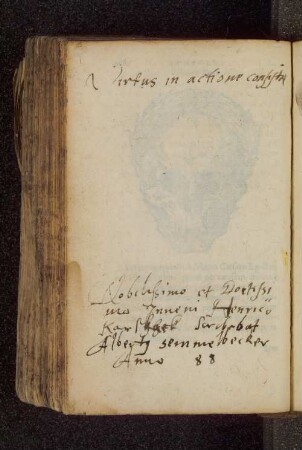 Virtus in actione consistit
Nobilissimo et Doctissi
mo Juveni Henricü
scribebat
Albertg semmelbecker
Anno 88